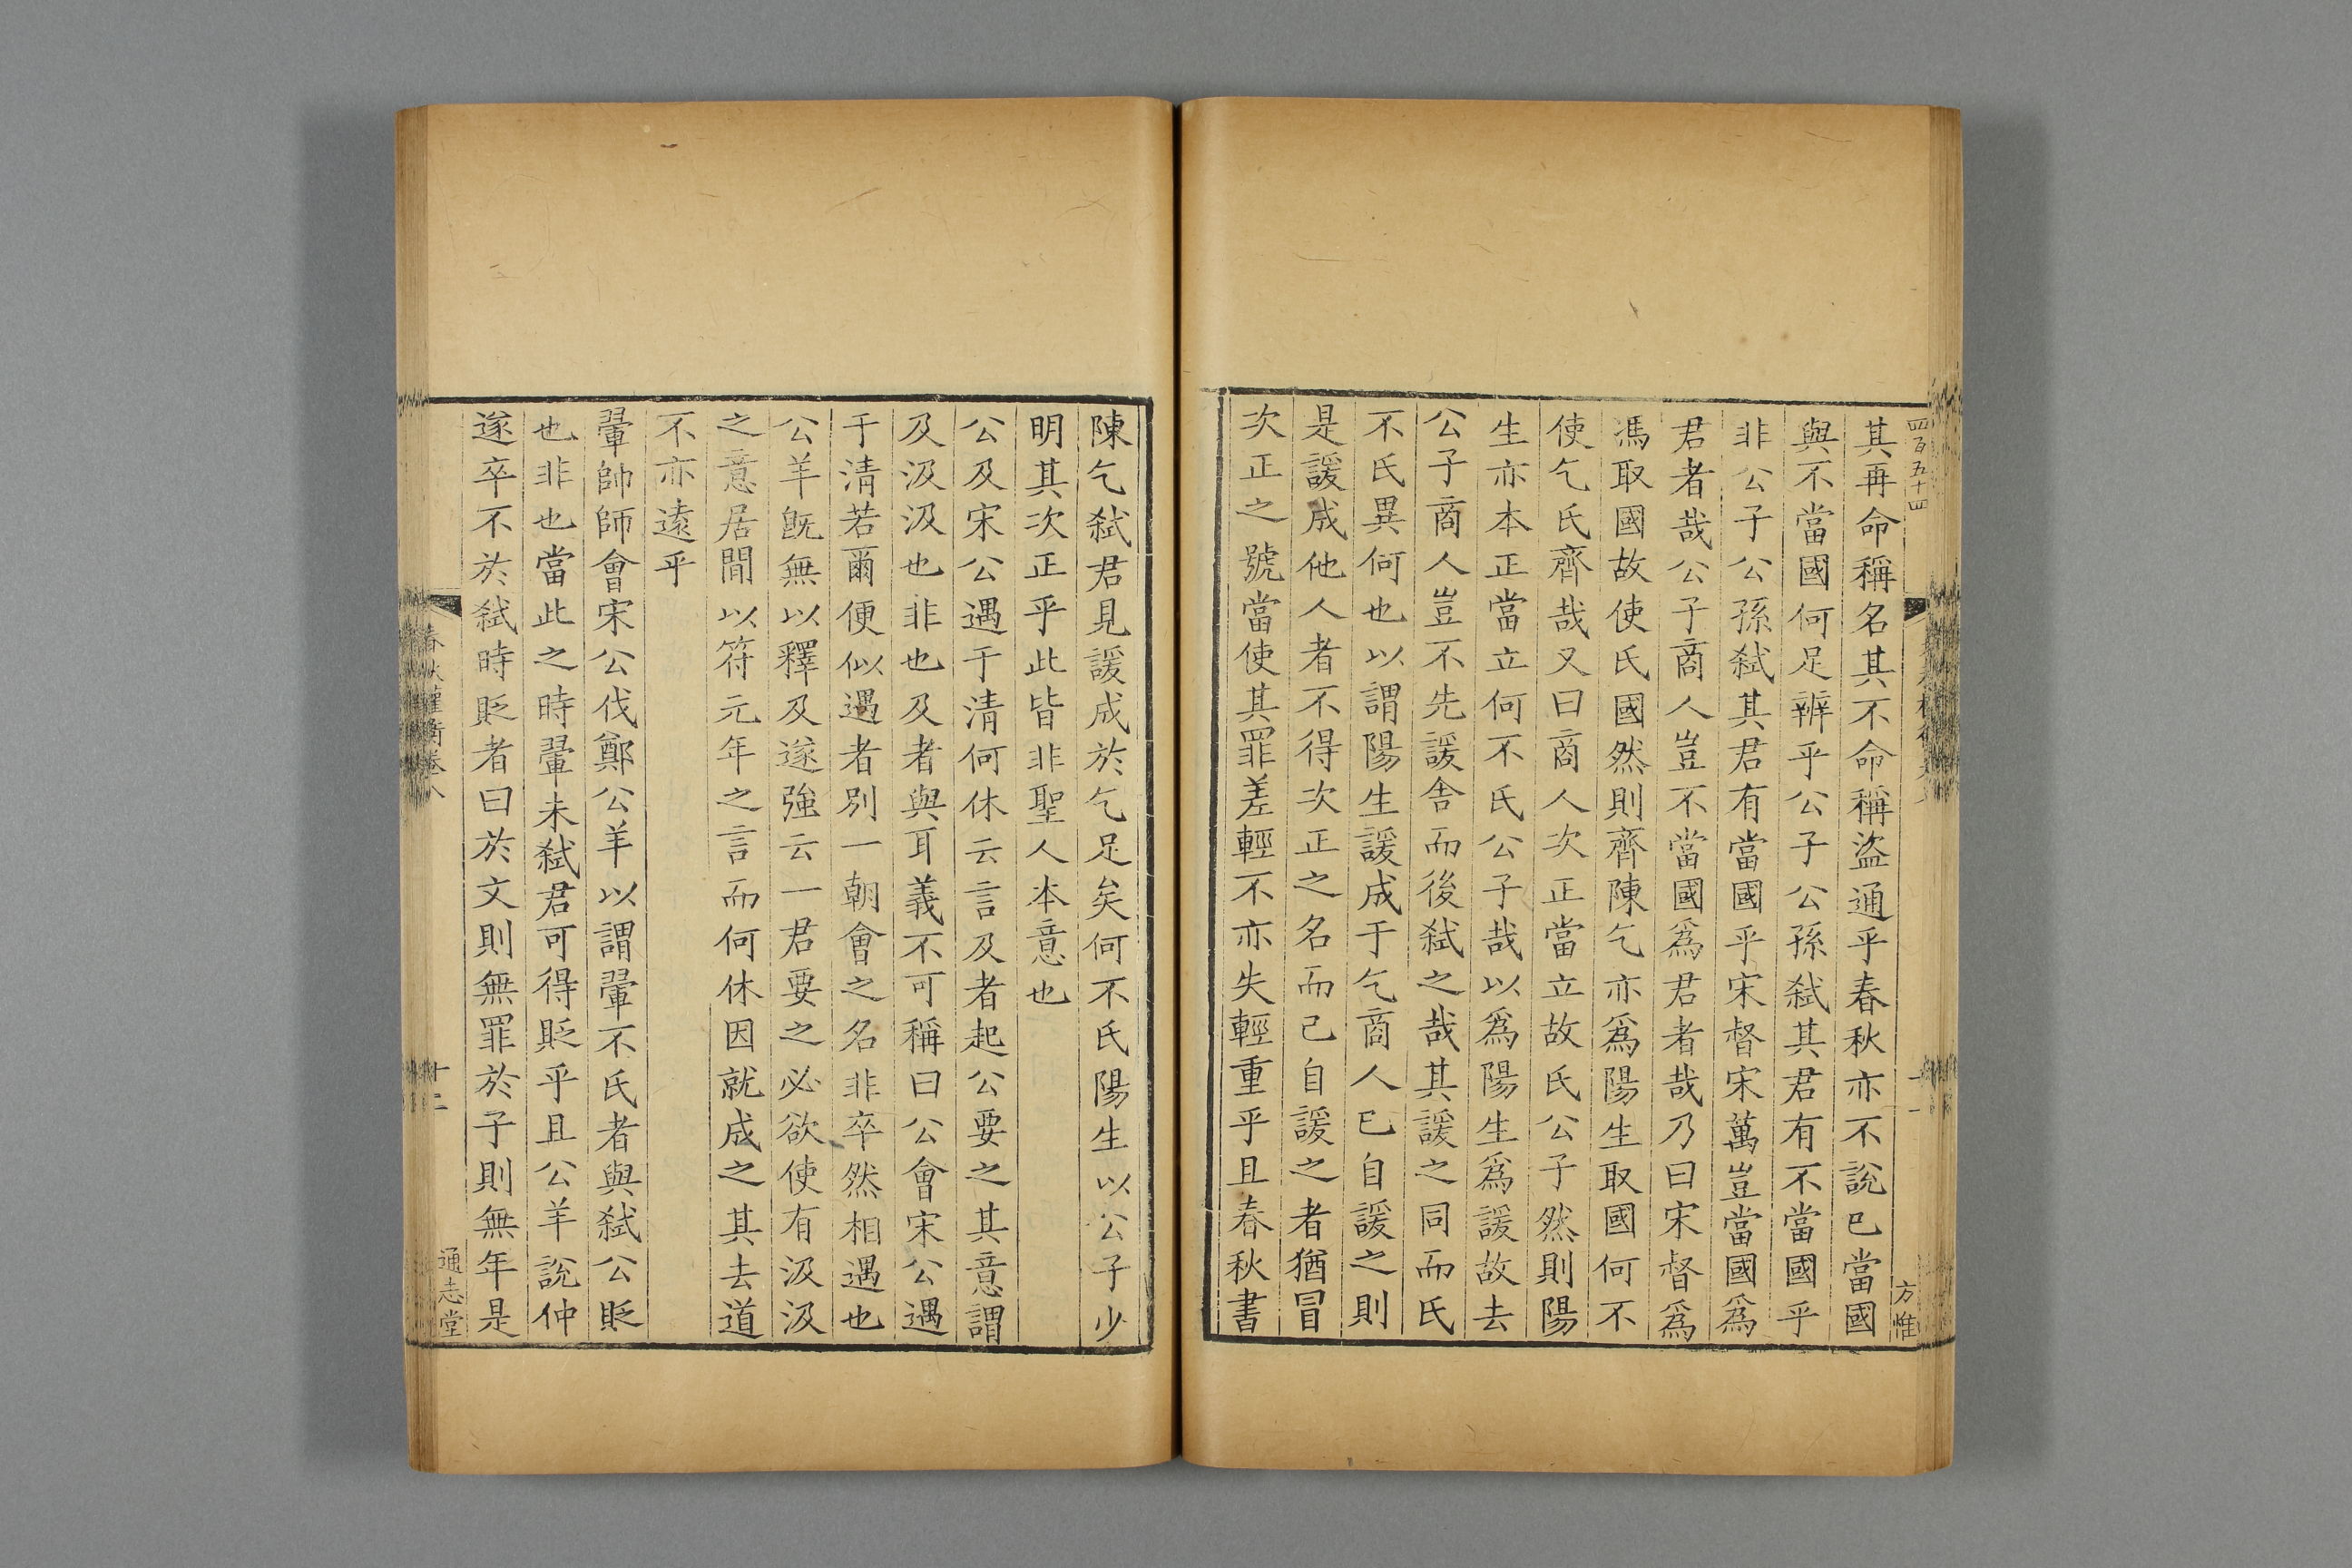 四百五十四
方惟
其再命稱名其不命稱盜通乎春秋亦不說已當國
與不當國何足辨乎公子公孫弑其君有不當國乎
非公子公孫弑其君有當國乎宋督宋萬豈當國爲
君者哉公子商人豈不當國爲君者哉乃曰宋督爲
馮取國故使氏國然則齊陳乞亦爲陽生取國何不
使乞氏齊哉又曰商人次正當立故氏公子然則陽
生亦本正當立何不氏公子哉以爲陽生爲諼故去
公子商人豈不先諼舍而後弑之哉其諼之同而氏
不氏異何也以謂陽生諼成于乞商人已自諼之則
是諼成他人者不得次正之名而己自諼之者猶冒
次正之號當使其罪差輕不亦失輕重乎且春秋書
陳乞弑君見諼成於乞足矣何不氏陽生以公子少
明其次正乎此皆非聖人本意也
公及宋公遇于清何休云言及者起公要之其意謂
及汲汲也非也及者與耳義不可稱曰公會宋公遇
于清若爾便似遇者別一朝會之名非卒然相遇也
公羊旣無以釋及遂強云一君要之必欲使有汲汲
之意居閒以符元年之言而何休因就成之其去道
不亦遠乎
翬帥師會宋公伐鄭公羊以謂翬不氏者與弑公貶
也非也當此之時翬未弑君可得貶乎且公羊說仲
遂卒不於弑時貶者曰於文則無罪於子則無年是
春秋權衡卷八
十二
通志堂